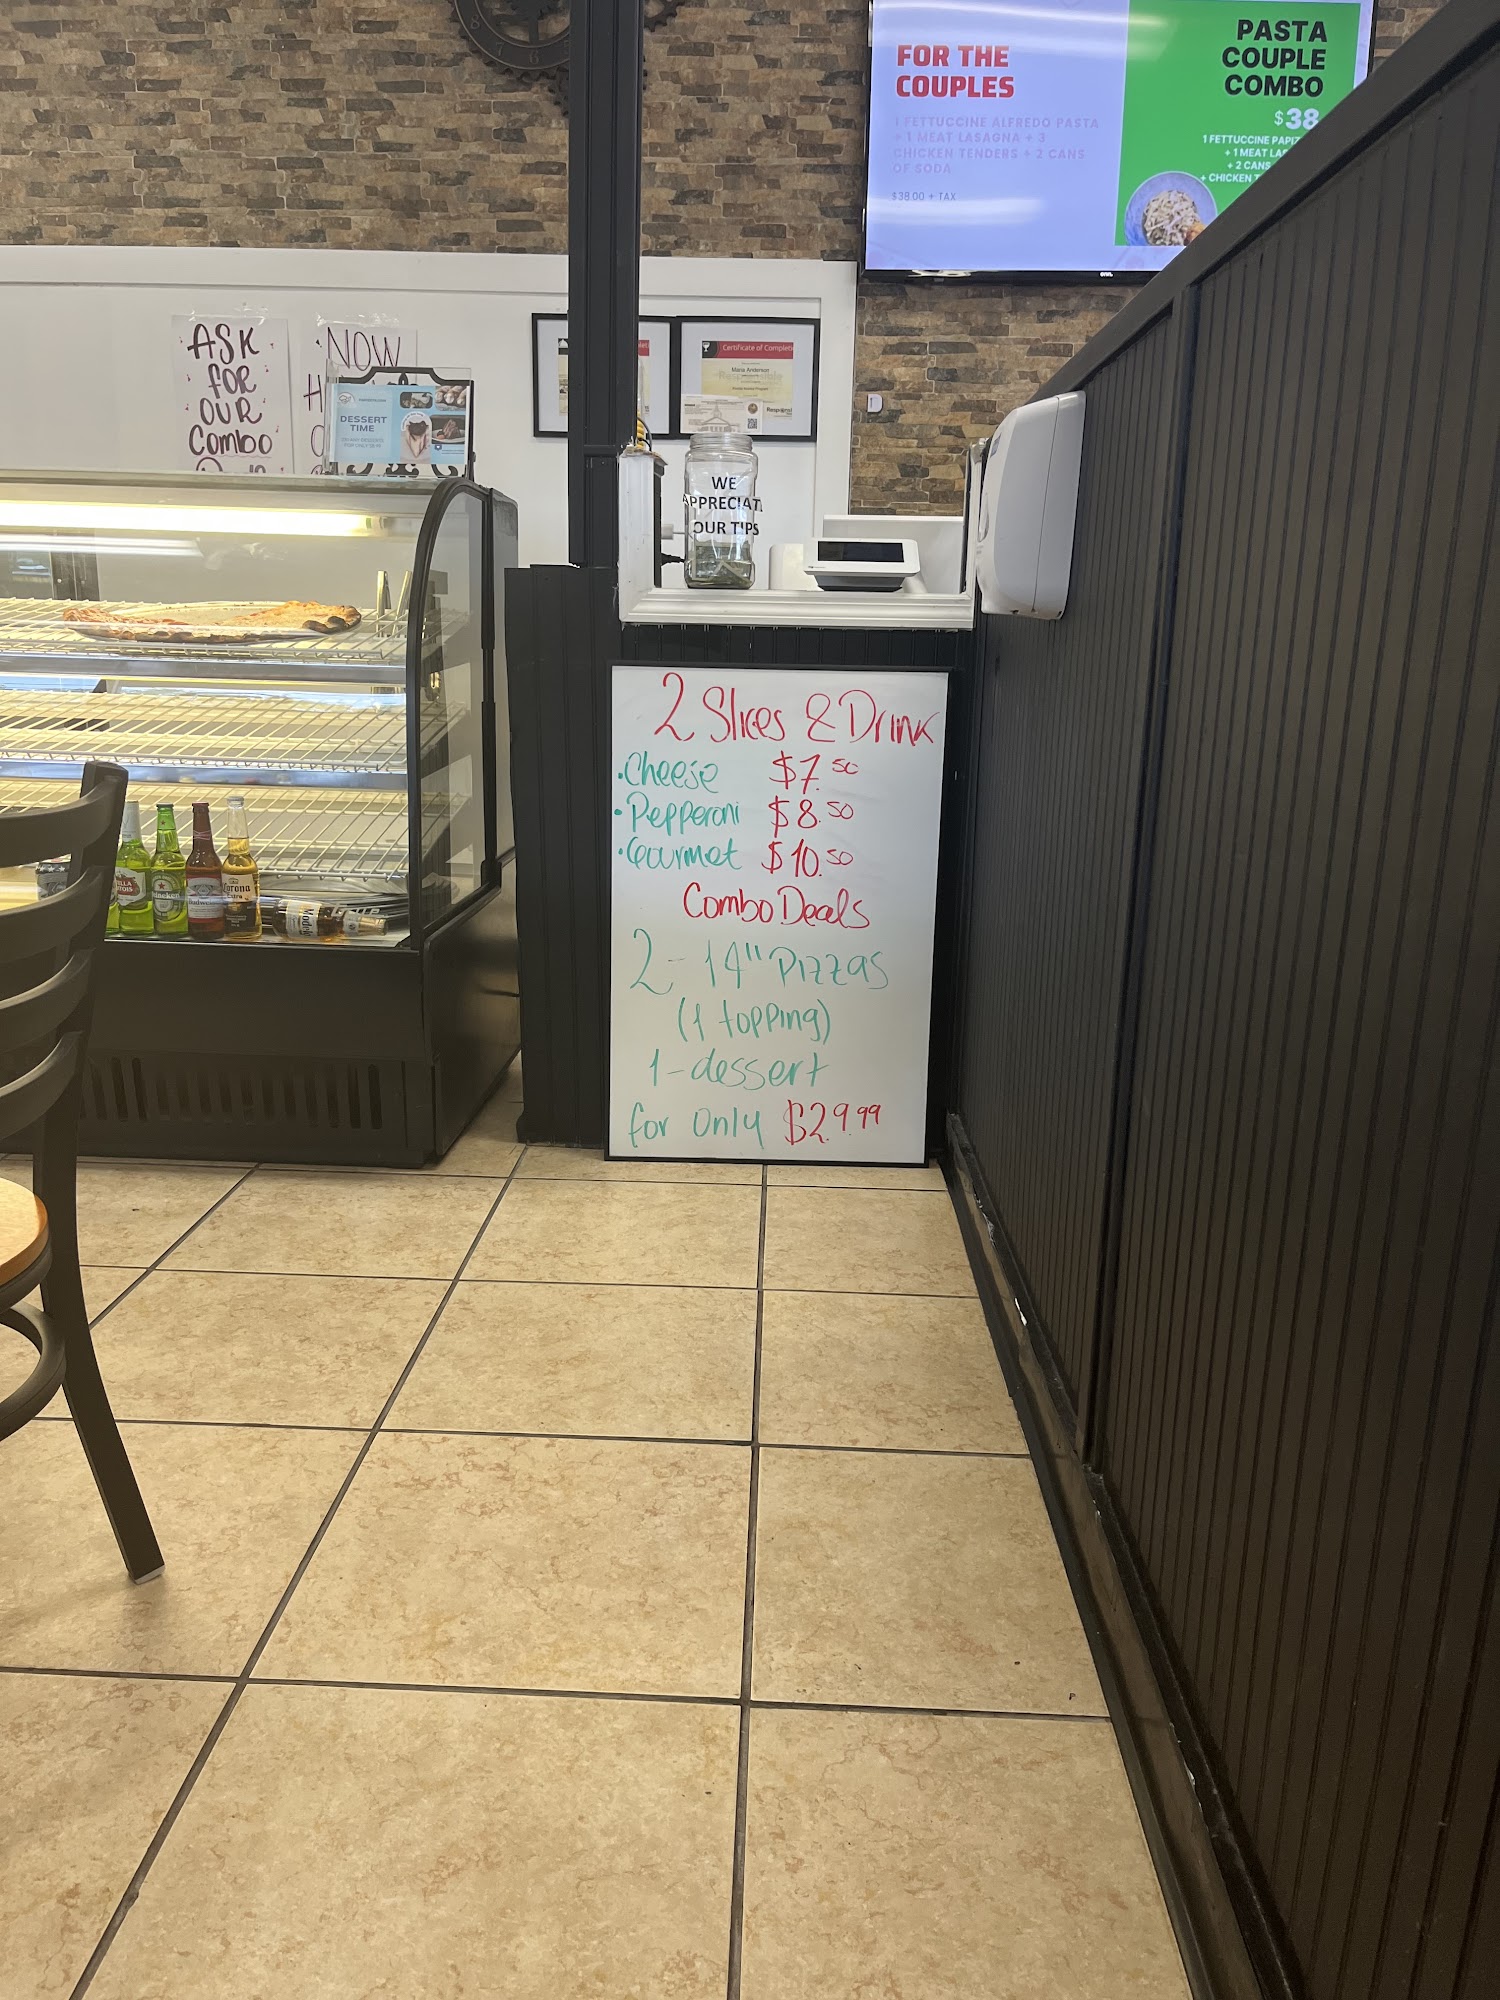 FOR THE
COUPLES
1 FETTUCCINE ALFREDO PASTA
+ 1 MEAT LASAGNA + 3
CHICKEN TENDERS + 2 CANS
OF SODA
$38.00 + TAX
PASTA
COUPLE
COMBO
$38
1 FETTUCCINE
+ 1 MEAT
+ 2 CANS
+ CHICKEN
ASK
FOR
OUR
Combo
NOW
DESSERT
TIME
Certificate of Completi
Maria Anderson
WE
APPRECIATE
OUR TIPS
2 Slices & Drink
•Cheese $7.50
•Pepperoni $8.50
•Gourmet $10.50
Combo Deals
2-14" Pizzas
(1 topping)
1-dessert
for only $29.99
Heineken
Budweiser
Corona
Extra
Modelo